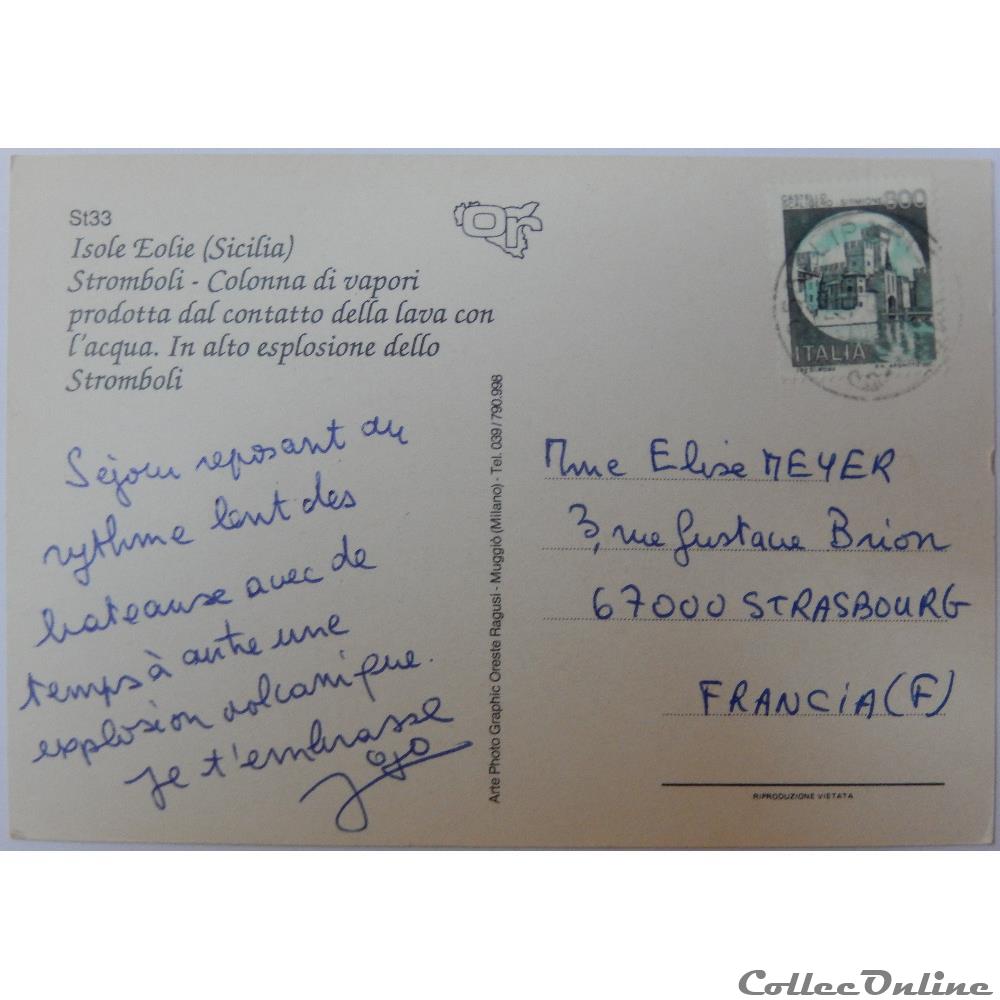 St33
Isole Eolie (Sicilia)
Stromboli - Colonna di vapori
prodotta dal contatto della lava con
l'acqua. In alto esplosione dello
Stromboli
or
800
ITALIA
Séjour reposant au
rythme lent des
bateaux avec de
temps à autre une
explosion volcanique.
Je t'embrasse
Jojo
Arte Photo Graphic Oreste Ragusi - Muggiò (Milano) - Tel. 039/790.998
Mme Elise MEYER
3, rue Gustave Brion
67000 STRASBOURG
FRANCIA (F)
RIPRODUZIONE VIETATA
CollecOnline